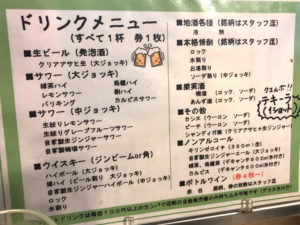 ドリンクメニュー
(すべて1杯 券1枚)
■生ビール(発泡酒)
クリアアサヒ生(大ジョッキ)
■サワー(大ジョッキ)
緑茶ハイ 烏龍ハイ
レモンサワー 酎ハイ
バリキング カルピスサワー
■サワー(中ジョッキ)
生絞りレモンサワー
生絞りグレープフルーツサワー
自家製生ジンジャーサワー
自家製梅干サワー
■ウイスキー(ジンビームor角)
ハイボール(大ジョッキ)
自家製生ジンジャーハイボール(中ジョッキ)
ロック
水割り
■地酒各種(銘柄はスタッフ迄)
冷 熱
■本格焼酎(銘柄はスタッフ迄)
ロック
水割り
お湯割り
ソーダ割り(中ジョッキ)
■果実酒
梅酒(ロック、ソーダ)
あんず酒(ロック、ソーダ)
テキーラ
(1ショット)
■その他
カシス(ウーロン、ソーダ)
ピーチ(ウーロン、ソーダ)
シャンディガフ
■ノンアルコール
キリンゼロイチ(360ml)
コーラ
カルピス
自家製生ジンジャーエール
■ボトルワイン(券4枚~)
赤 白
銘柄、券の枚数はスタッフ迄